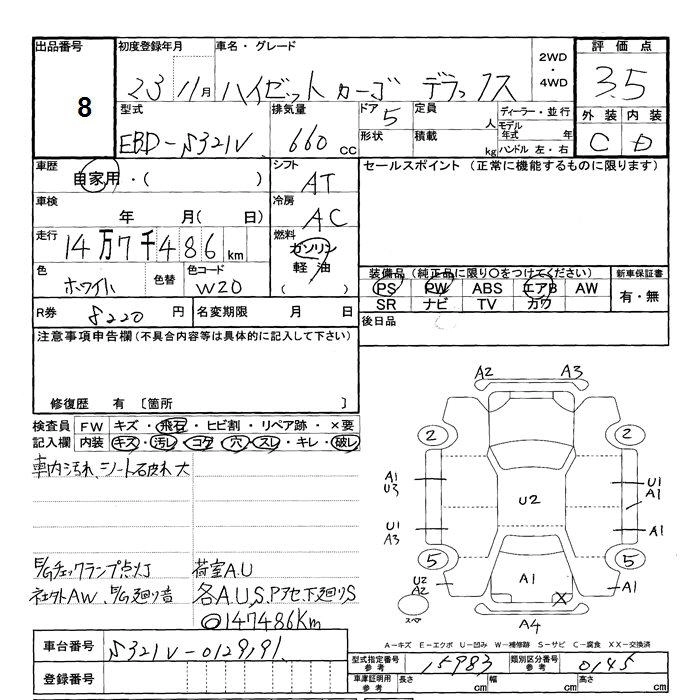 出品番号 初度登録年月 車名・グレード 2WD・4WD 評価点
8 23 11月 ハイゼットカーゴ デラックス 3.5
型式 排気量 ドア 5 定員 人 ディーラー・並行 外装 内装
EBD-S321V 660cc 形状 積載 kg モデル年式 年 ハンドル 左・右 C D
車歴 自家用・( ) シフト AT セールスポイント (正常に機能するものに限ります)
車検 年 月( 日) 冷房 AC
走行 14万7千486km 燃料 ガソリン 軽油 ( )
色 ホワイト 色替 色コード W20
装備品 (純正品に限り○をつけてください) 新車保証書
PS PW ABS エアB AW 有・無
SR ナビ TV カワ
R券 8220円 名変期限 月 日 後日品
注意事項申告欄 (不具合内容等は具体的に記入して下さい)
修復歴 有 〔箇所 〕
検査員 FW キズ・飛石・ヒビ割・リペア跡・×要
記入欄 内装 キズ・汚レ・コゲ・穴・スレ・キレ・破レ
車内汚れ、シート破れ大
E/Gチェックランプ点灯 荷室A.U
社外AW、E/G廻り音 各A.U.S.Pアセ、下廻りS
◎147486Km
A2 A3
2 2
A1 U3 U2 U1 A1
U1 A3 A1
5 5
U2 A2 A1 X A1
スペア A4
A－キズ E－エクボ U－凹み W－補修跡 S－サビ C－腐食 XX－交換済
車台番号 S321V-0129191
登録番号
型式指定番号 参考 15983 類別区分番号 参考 0145
車庫証明用 参考 長さ cm 幅 cm 高さ cm